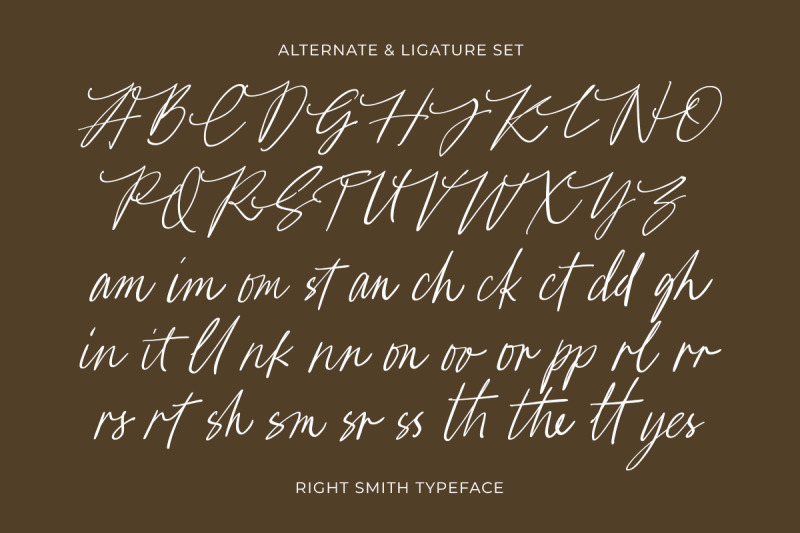 ALTERNATE & LIGATURE SET
A B C D G H J K L N O
P Q R S T U V W X Y Z
am im om st an ch ck ct dd gh
in it ll nk nn on oo or pp rl rr
rs rt sh sm sr ss th the tt yes
RIGHT SMITH TYPEFACE